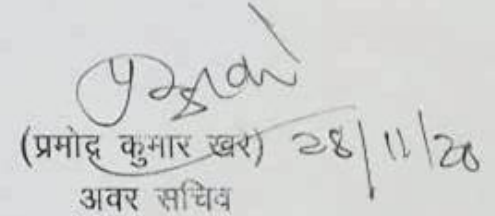 (प्रमोद्र कुमार खर) 28/11/20
अवर सचिव